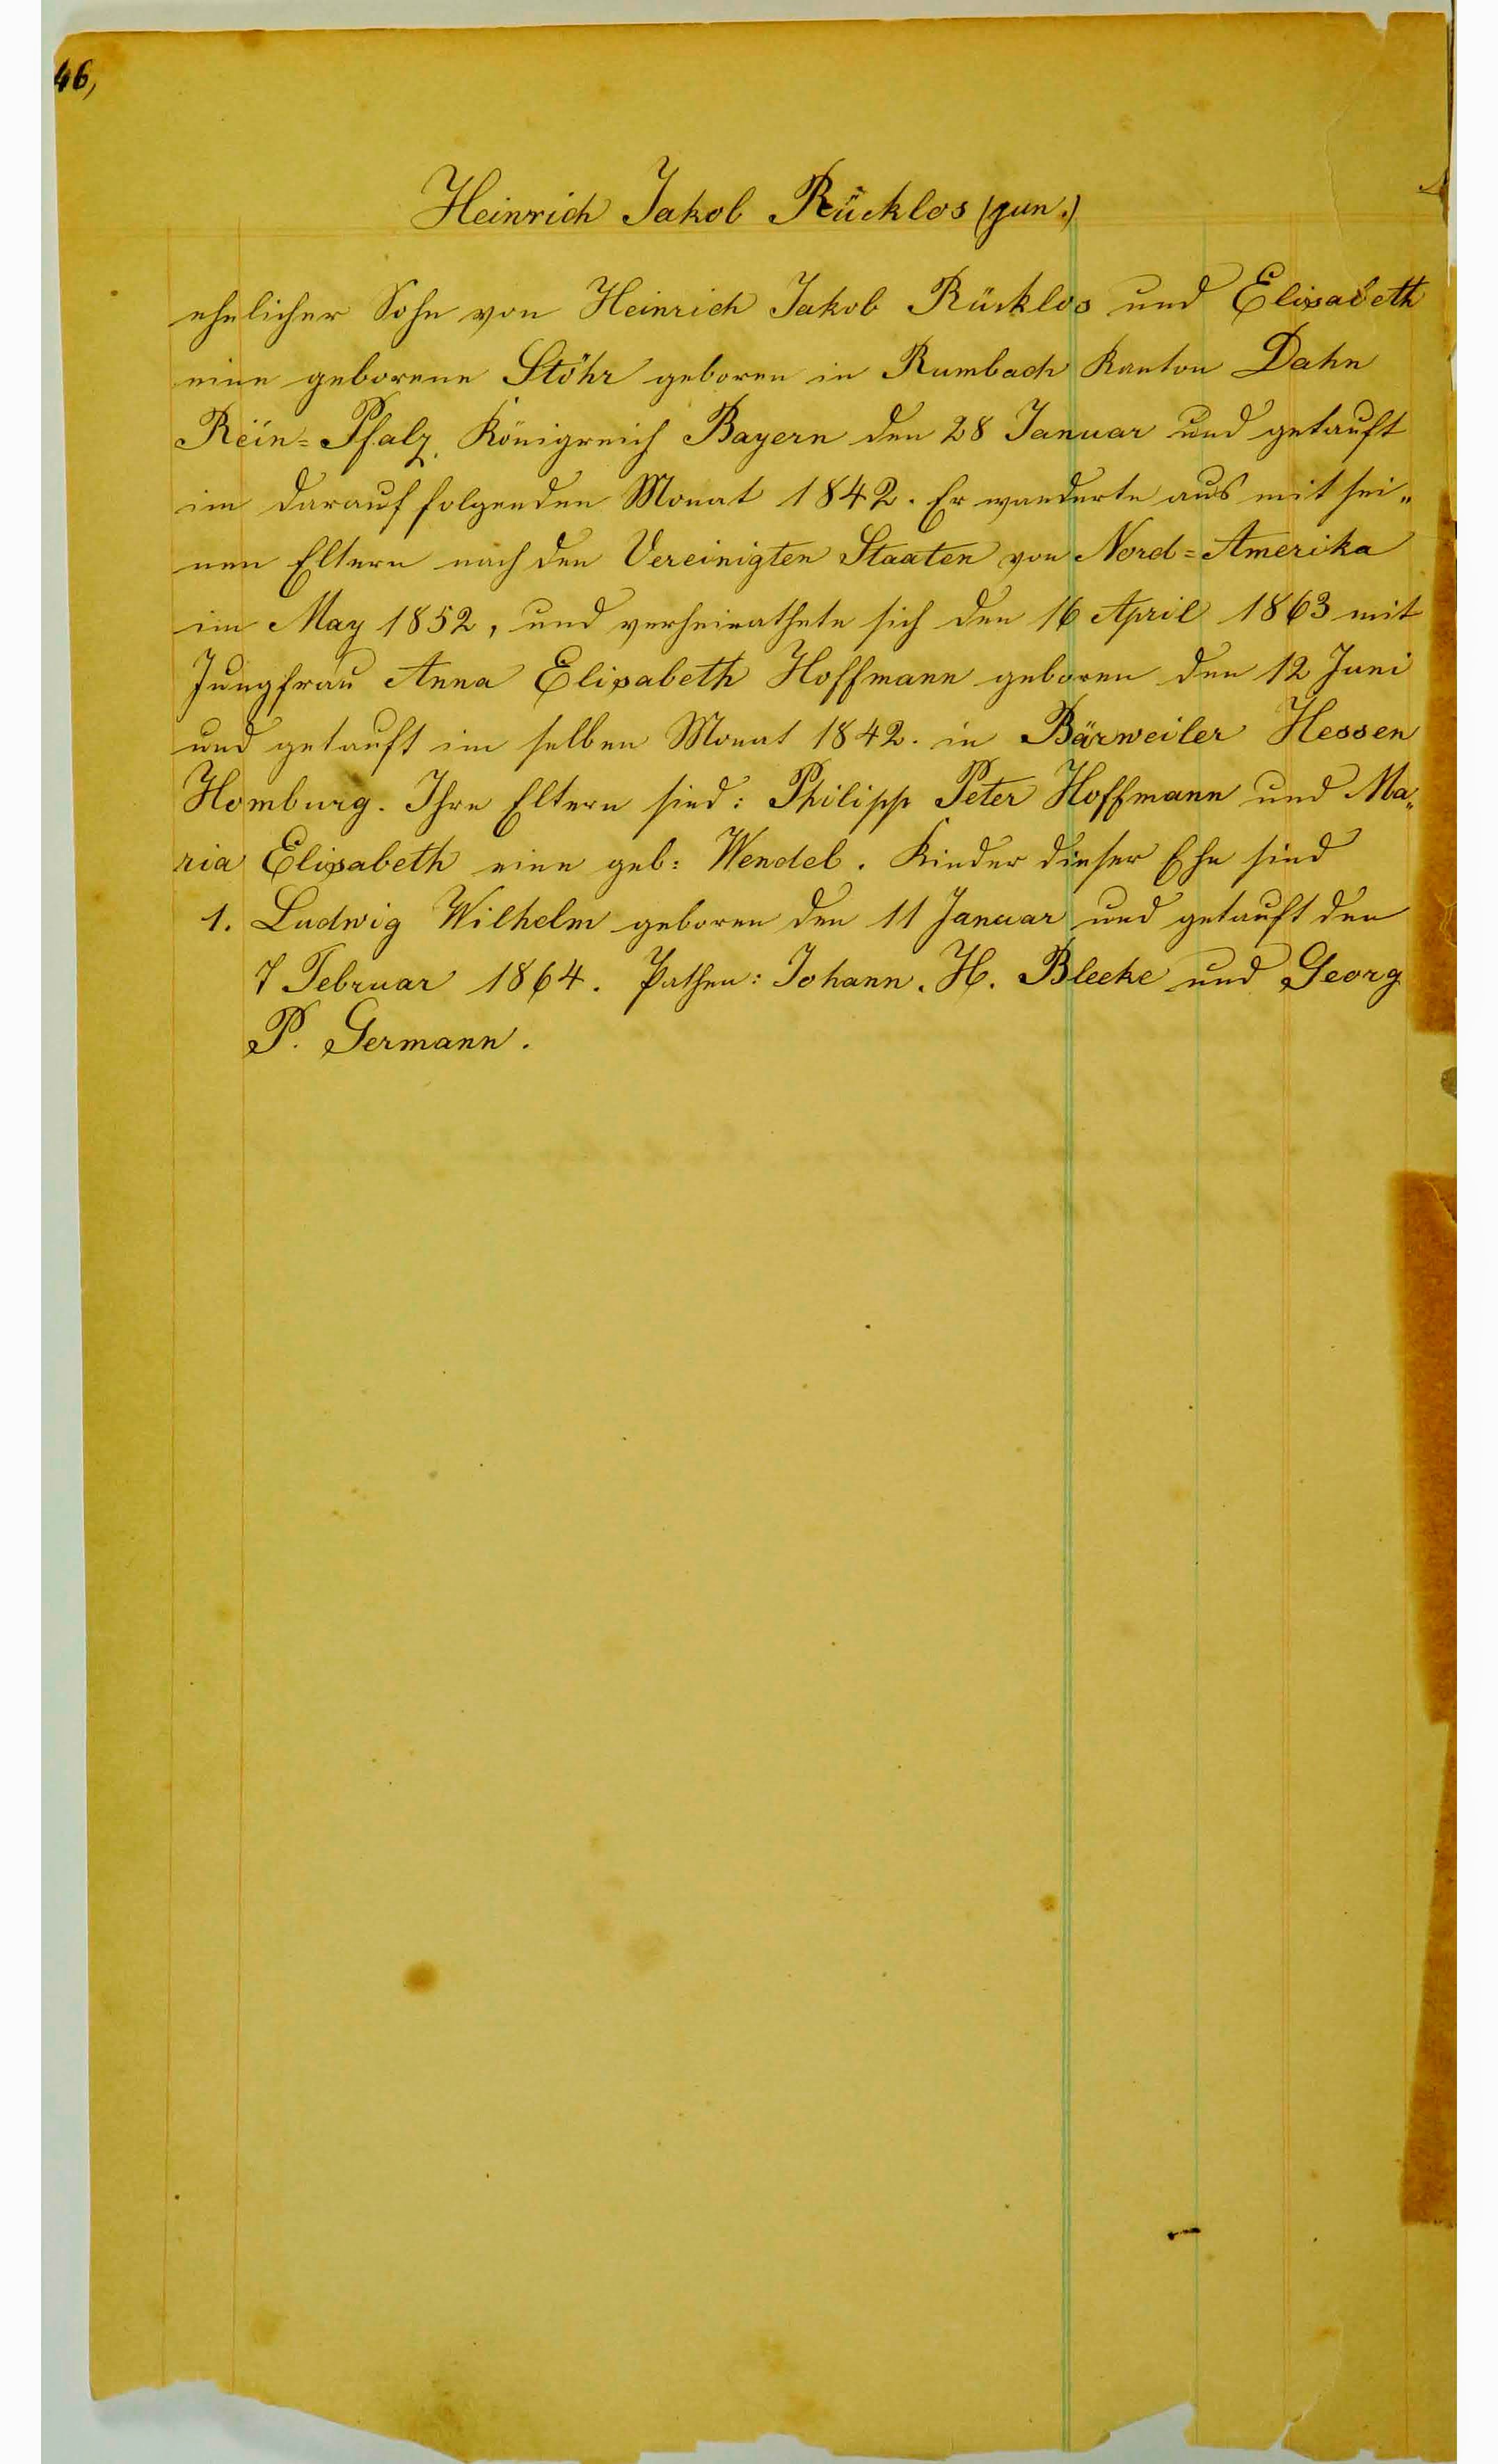 46,
Heinrich Jakob Rücklos (jun.)
ehelicher Sohn von Heinrich Jakob Rücklos und Elisabeth
eine geborene Stöhr geboren in Rumbach Kanton Dahn
Rein=Pfalz. Königreich Bayern den 28 Januar und getauft
im darauf folgenden Monat 1842. Er wanderte aus mit sei„
nen Eltern nach den Vereinigten Staaten von Nord=Amerika
im May 1852, und verheirathete sich den 16 April 1863 mit
Jungfrau Anna Elisabeth Hoffmann geboren den 12 Juni
und getauft im selben Monat 1842. in Bärweiler Hessen
Homburg. Ihre Eltern sind: Philipp Peter Hoffmann und Ma„
ria Elisabeth eine geb: Wendel. Kinder dieser Ehe sind
1. Ludwig Wilhelm geboren den 11 Januar und getauft den
7 Februar 1864. Pathen: Johann. H. Bleeke und Georg
P. Germann.